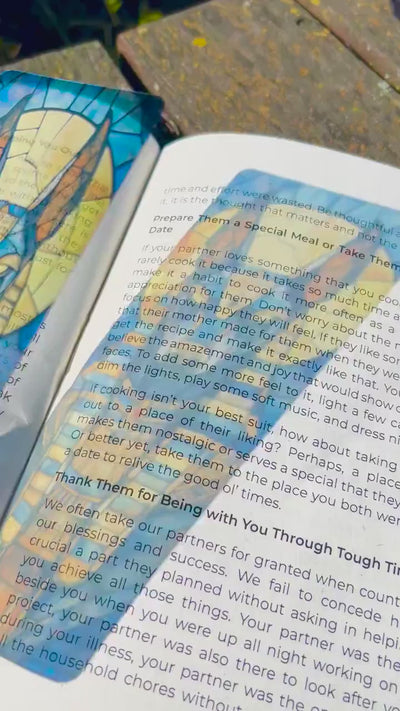 time and effort were wasted. Be thoughtful a
it, it is the thought that matters and not the
Prepare Them a Special Meal or Take Them
Date
If your partner loves something that you coo
rarely cook it because it takes so much time a
make it a habit to cook it more often as a
appreciation for them. Don't worry about the
focus on how happy they will feel. If they like som
that their mother made for them when they we
get the recipe and make it exactly like that. You
believe the amazement and joy that would show o
faces. To add some more feel to it, light a few ca
dim the lights, play some soft music, and dress ni
If cooking isn't your best suit, how about taking
out to a place of their liking? Perhaps, a place
makes them nostalgic or serves a special that they
Or better yet, take them to the place you both wer
a date to relive the good ol' times.
Thank Them for Being with You Through Tough Tir
We often take our partners for granted when count
our blessings and success. We fail to concede h
crucial a part they planned without asking in helpi
you achieve all those things. Your partner was the
beside you when you were up all night working on
project, your partner was also there to look after yo
during your illness, your partner was the on
ll the household chores without